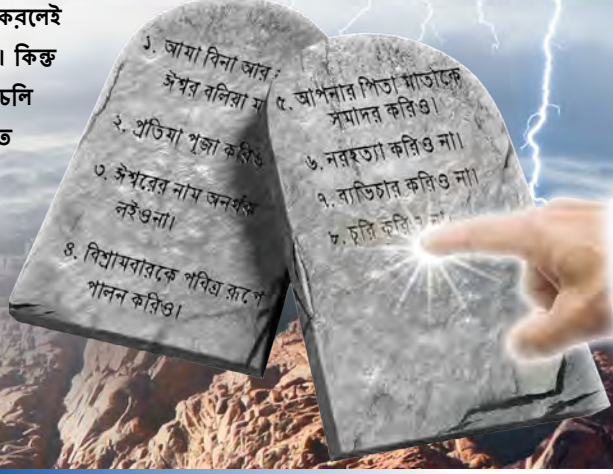 করলেই
। কিন্তু
চলি
ত
১. আমা বিনা আর
ঈশ্বর বলিয়া
২. প্রতিমা পূজা করিও
৩. ঈশ্বরের নাম অনর্থক
লইওনা।
৪. বিশ্রামবারকে পবিত্র রূপে
পালন করিও।
৫. আপনার পিতা মাতাকে
সমানর করিও।
৬. নরহত্যা করিও না।
৭. ব্যভিচার করিও না।
৮. চুরি করিও না।